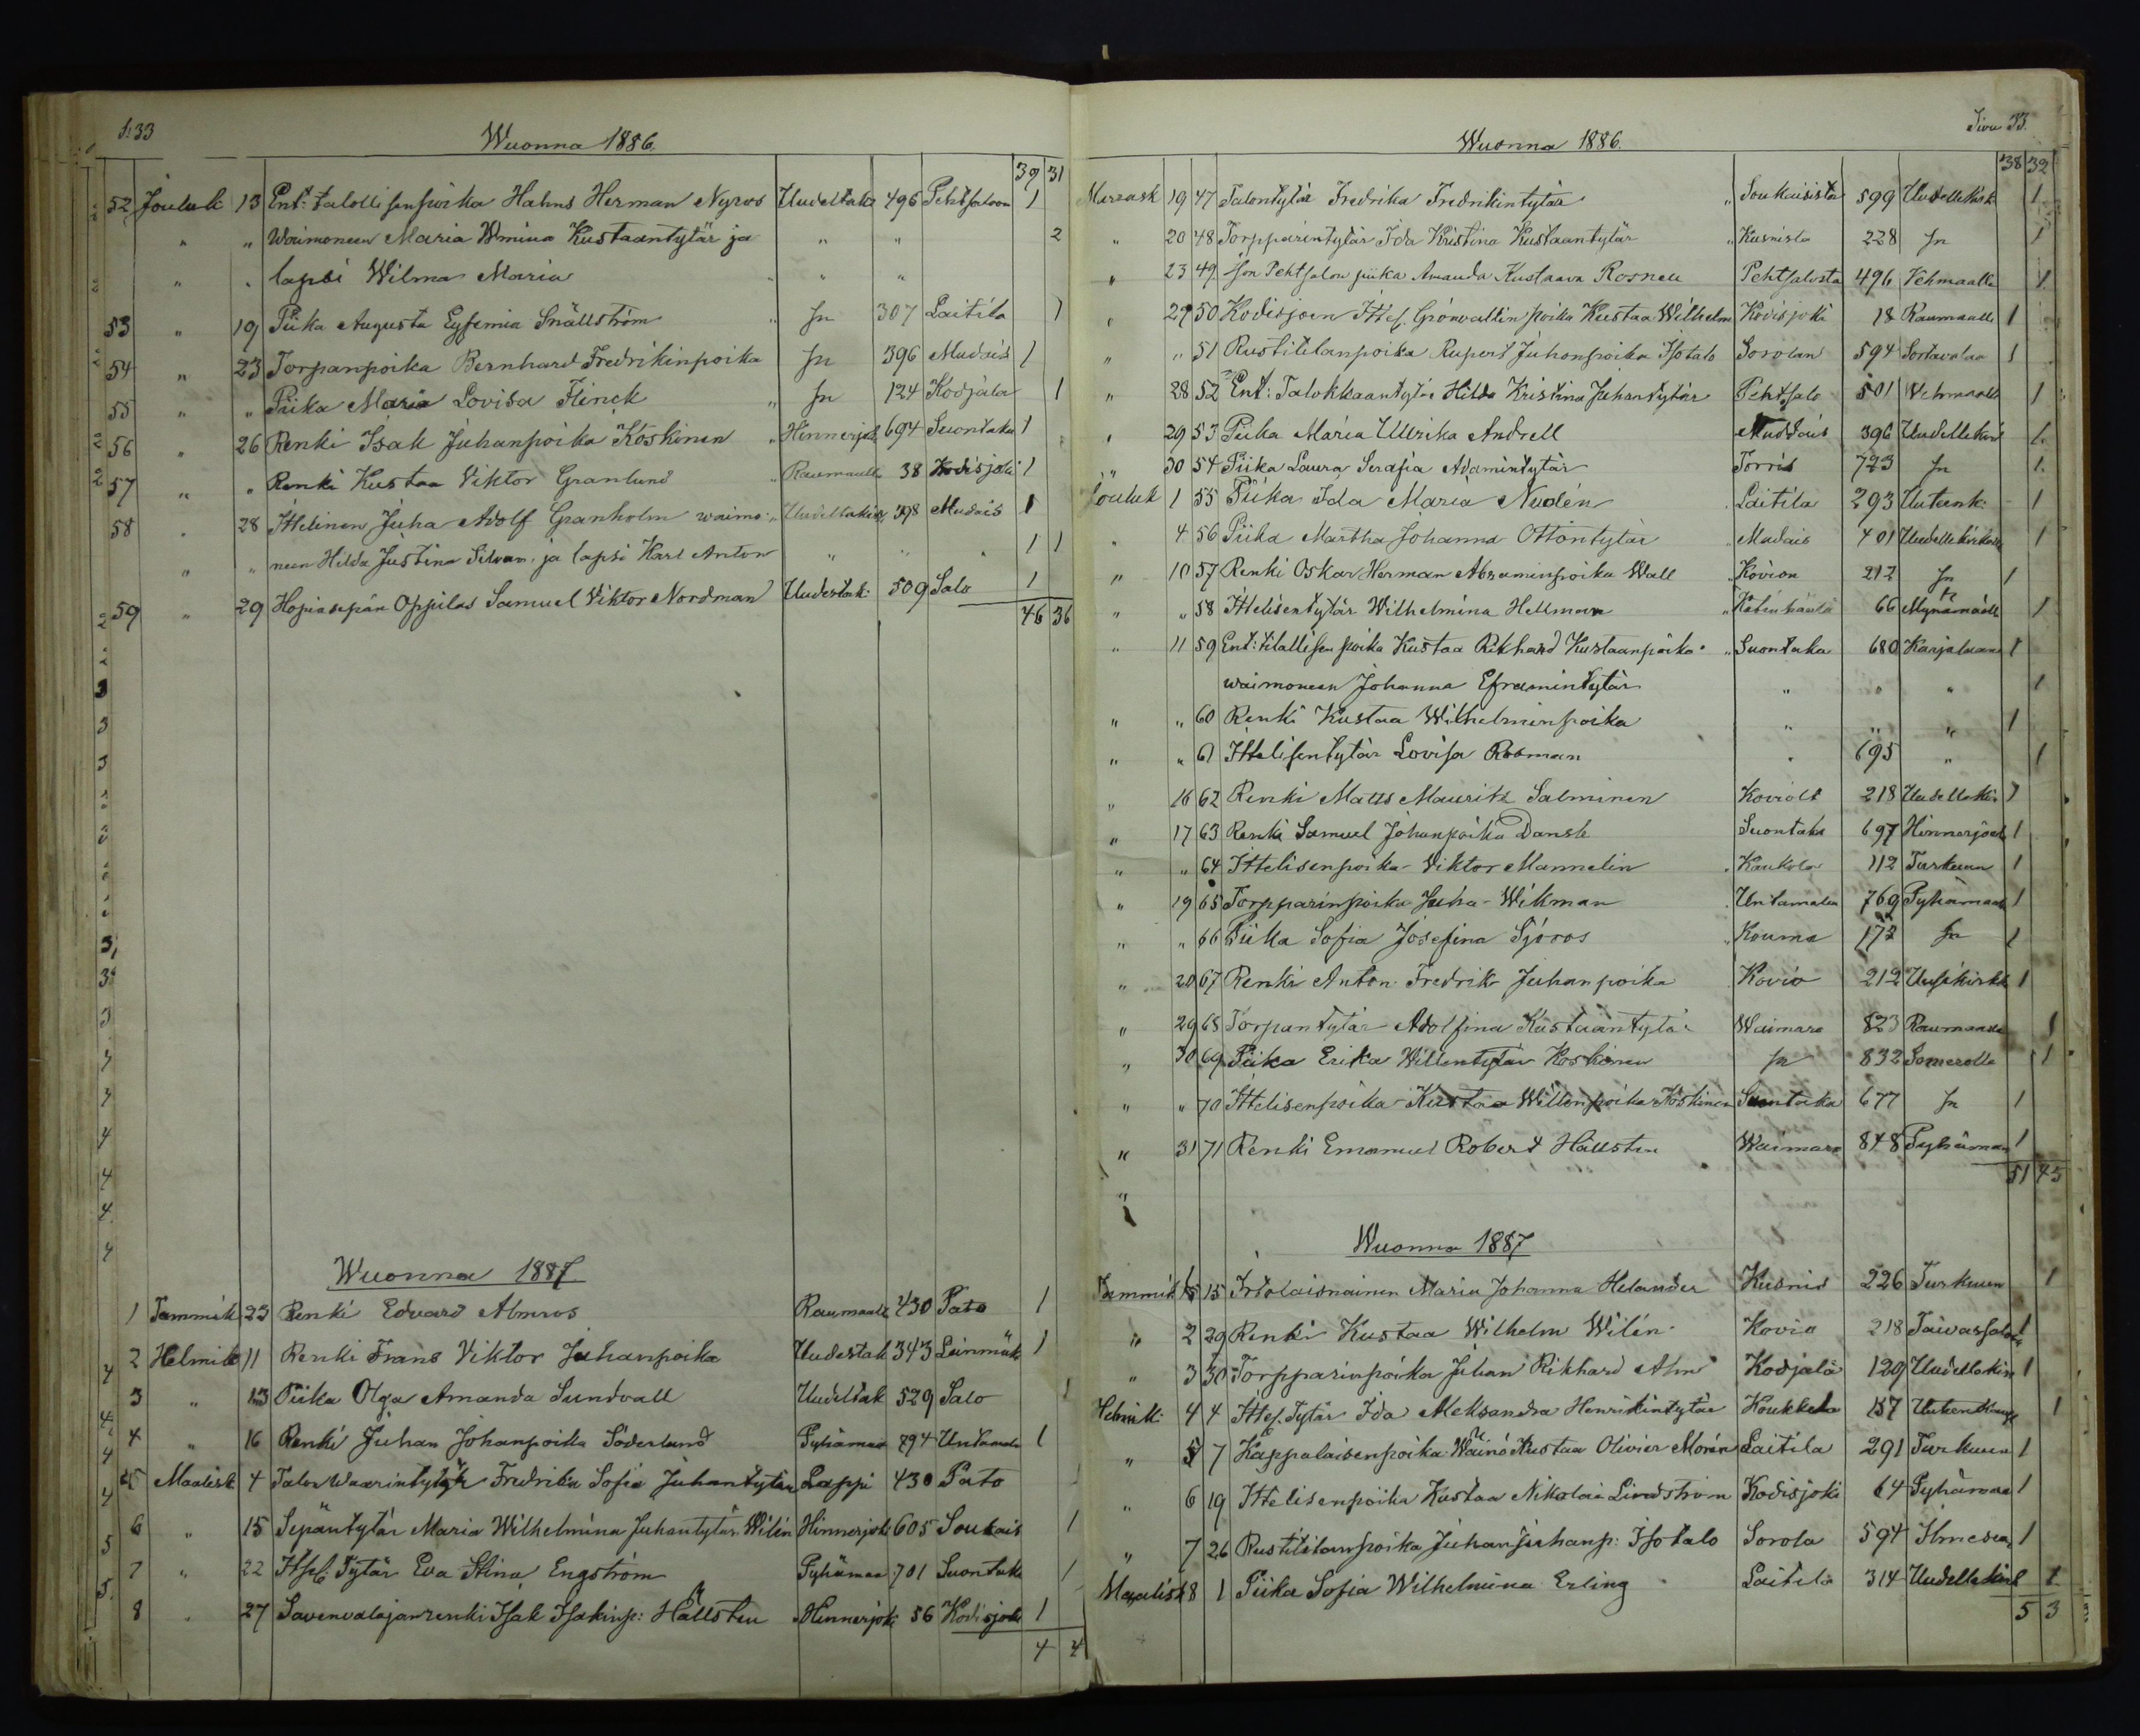 S:33
Wuonna 1886.
39 31
52 Jouluk 13 Ent: talollisenpoika Hahns Herman Nyroos Uudeltak 496 Pehtsaloon 1
" " Waimoneen Maria Wmina Kustaantytär ja " " 2
" " lapsi Wilma Maria " "
53 " 19 Piika Augusta Eyfemia Snällström " Sn 307 Laitila 1
54 " 23 Torpanpoika Bernhard Fredrikinpoika Sn 396 Mudais 1
55 " " Piika Maria Lovisa Flinck " Sn 124 Kodjala 1
56 " 26 Renki Isak Juhanpoika Koskinen " Hinnerjok 694 Suontaka 1
57 " " Renki Kustaa Viktor Granlund " Raumaalta 38 Kodisjoki 1
58 " 28 Ittelinen Juha Adolf Granholm waimo: " Uudeltakir 398 Mudais 1
" " neen Hilda Justina Silvan. ja lapsi Karl Anton " " " 1 1
59 " 29 Hopiasepän Oppilas Samuel Viktor Nordman Uudestak: 509 Salo 1
46 36
Wuonna 1887.
1 Tammik 23 Renki Edvard Almroos Raumaalt 430 Pato 1
2 Helmik 11 Renki Frans Viktor Juhanpoika Uudestak 343 Leinmäk 1
3 " 13 Piika Olga Amanda Sundvall Uudeltak 529 Salo 1
4 " 16 Renki Juhan Johanpoika Söderlund Pyhämaa 794 Untamala 1
5 Maalisk 4 Talon Waarintytär Fredrika Sofia Juhantytär Lappi 430 Pato
6 " 15 Sepäntytär Maria Wilhelmina Juhantytär Wilin Hinnerjoki 605 Soukais 1
7 " 22 Itsel: Tytär Eva Stina Engström Pyhämaa 701 Suontaka 1
8 " 27 Savenvalajanrenki Isak Isakinp: Hällsten Hinnerjoki 56 Kodisjoki 1
4 4
Sivu 33.
Wuonna 1886.
38 32
Marrask 19 47 Talontytär Fredrika Fredrikintytär " Soukaisista 599 Uudellekirk 1
" 20 48 Torpparintytär Ida Kristina Kustaantytär " Kusnista 228 Sn 1
" 23 49 Ison Pehtsalon piika Amanda Kustaava Rosnell Pehtsalosta 496 Vehmaalle 1
" 27 50 Kodisjoen Ittel. Grönvallin poika Kustaa Wilhelm Kodisjoki 18 Raumaalle 1
" " 51 Rustitilanpoika Rupert Juhonpoika Isotalo Sorolan 594 Sortavalaa 1
" 28 52 Ent: Talokkaantytär Hilda Kristina Juhantytär Pehtsalo 501 Vehmaalle 1
" 29 53 Piika Maria Ullrika Andrell Muddais 396 Uudellekirk 1
" 30 54 Piika Laura Serafia Adamintytär Torris 723 Sn 1
Jouluk 1 55 Piika Ida Maria Nudén " Laitila 293 Uuteenk: 1
" 4 56 Piika Martha Johanna Ottontytär " Mudais 401 Uudellekirkolle 1
" 10 57 Renki Oskar Herman Abraminpoika Wall " Kovion 212 Sn 1
" " 58 Ittelisentytär Wilhelmina Hellman 66 Mynämäelle 1
" 11 59 Ent: tilallisen poika Kustaa Rikhard Kustaanpoika " Suontaka 680 Karjalaan 1
waimoneen Johanna Eframintytär " " " 1
" " 60 Renki Kustaa Wilhelminpoika " " " 1
" " 61 Ittelisentytär Lovisa Rosman " 695 " 1
" 16 62 Renki Matts Mauritz Salminen Koviolt 218 Uudelleki 1
" 17 63 Renki Samuel Johanpoika Dansk Suontaka 697 Hinnerjoelle 1
" " 64 Ittelisenpoika Viktor Mannelin " Kaukola 112 Turkuun 1
" 19 65 Torpparinpoika Juha Wikman Untamala 769 Pyhämaal 1
" " 66 Piika Sofia Josefina Sjöroos " Kouma 172 Sn 1
" 20 67 Renki Anton Fredrik Juhanpoika Kovio 212 Uusikirkk 1
" 29 68 Torpantytär Adolfina Kustaantytär Waimaro 823 Raumaalle 1
" 30 69 Piika Erika Willentytär Koskinen Sn 832 Somerolle 1
" " 70 Ittelisenpoika Kustaa Willenpoika Koskinen Suontaka 677 Sn 1
" 31 71 Renki Emanuel Robert Hällsten Waimaro 848 Pyhämaa 1
51 45
Wuonna 1887
Tammik 1 15 Irtolaisnainen Maria Johanna Helander Kusnis 226 Turkuun 1
" 2 29 Renki Kustaa Wilhelm Wilén Kovio 218 Taivassalo 1
" 3 30 Torpparinpoika Juhan Rikhard Alm Kodjala 129 Uudellekirk 1
Helmik: 4 4 Ittel. Tytär Ida Aleksandra Henrikintytär Koukkela 157 Uuteenkaup 1
" 5 7 Kappalaisenpoika Wäinö Kustaa Olivier Morén Laitila 291 Turkuun 1
" 6 19 Ittelisenpoika Kustaa Nikolai Lindström Kodisjoki 64 Pyhämaa 1
" 7 26 Rustitilanpoika Juhan Juhanp: Isotalo Sorola 594 1
Maalisk 8 1 Piika Sofia Wilhelmina Erling Laitila 314 Uudellekirk 1
5 3